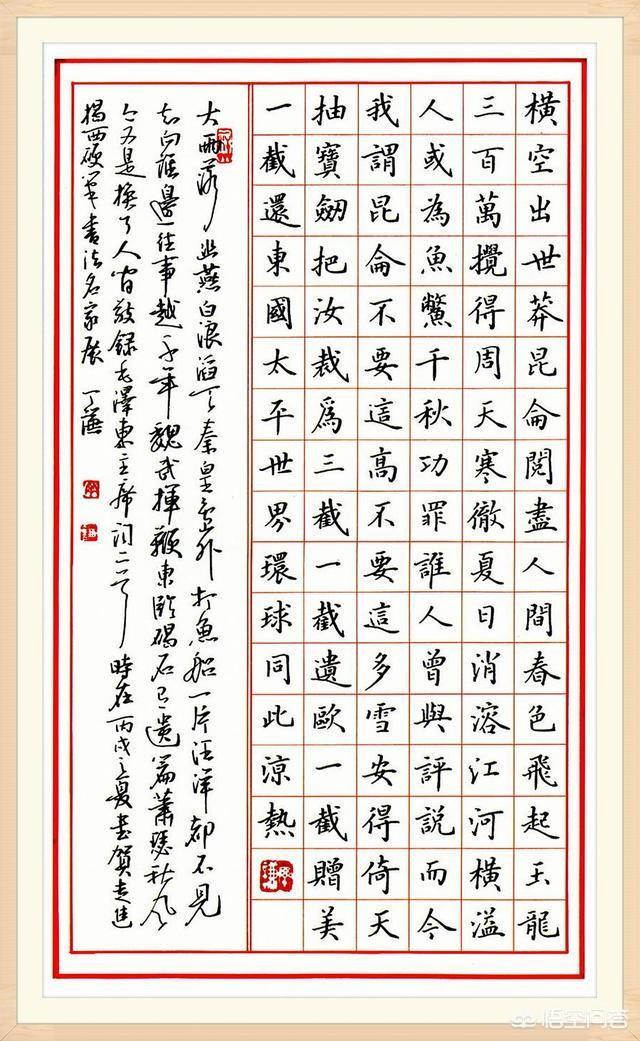 橫空出世莽昆侖閱盡人間春色飛起玉龍
三百萬攪得周天寒徹夏日消溶江河橫溢
人或為魚鱉千秋功罪誰人曾與評說而今
我謂昆侖不要這高不要這多雪安得倚天
抽寶劍把汝裁爲三截一截遺歐一截贈美
一截還東國太平世界環球同此涼熱
大雨落幽燕白浪滔天秦皇島外打魚船一片汪洋都不見
知向誰邊往事越千年魏武揮鞭東臨碣石有遺篇蕭瑟秋風
今又是換了人間敬錄毛澤東主席詞二首時在丙戌之夏書賀走進
揭西硬筆書法名家展 丁謙
悟空问答